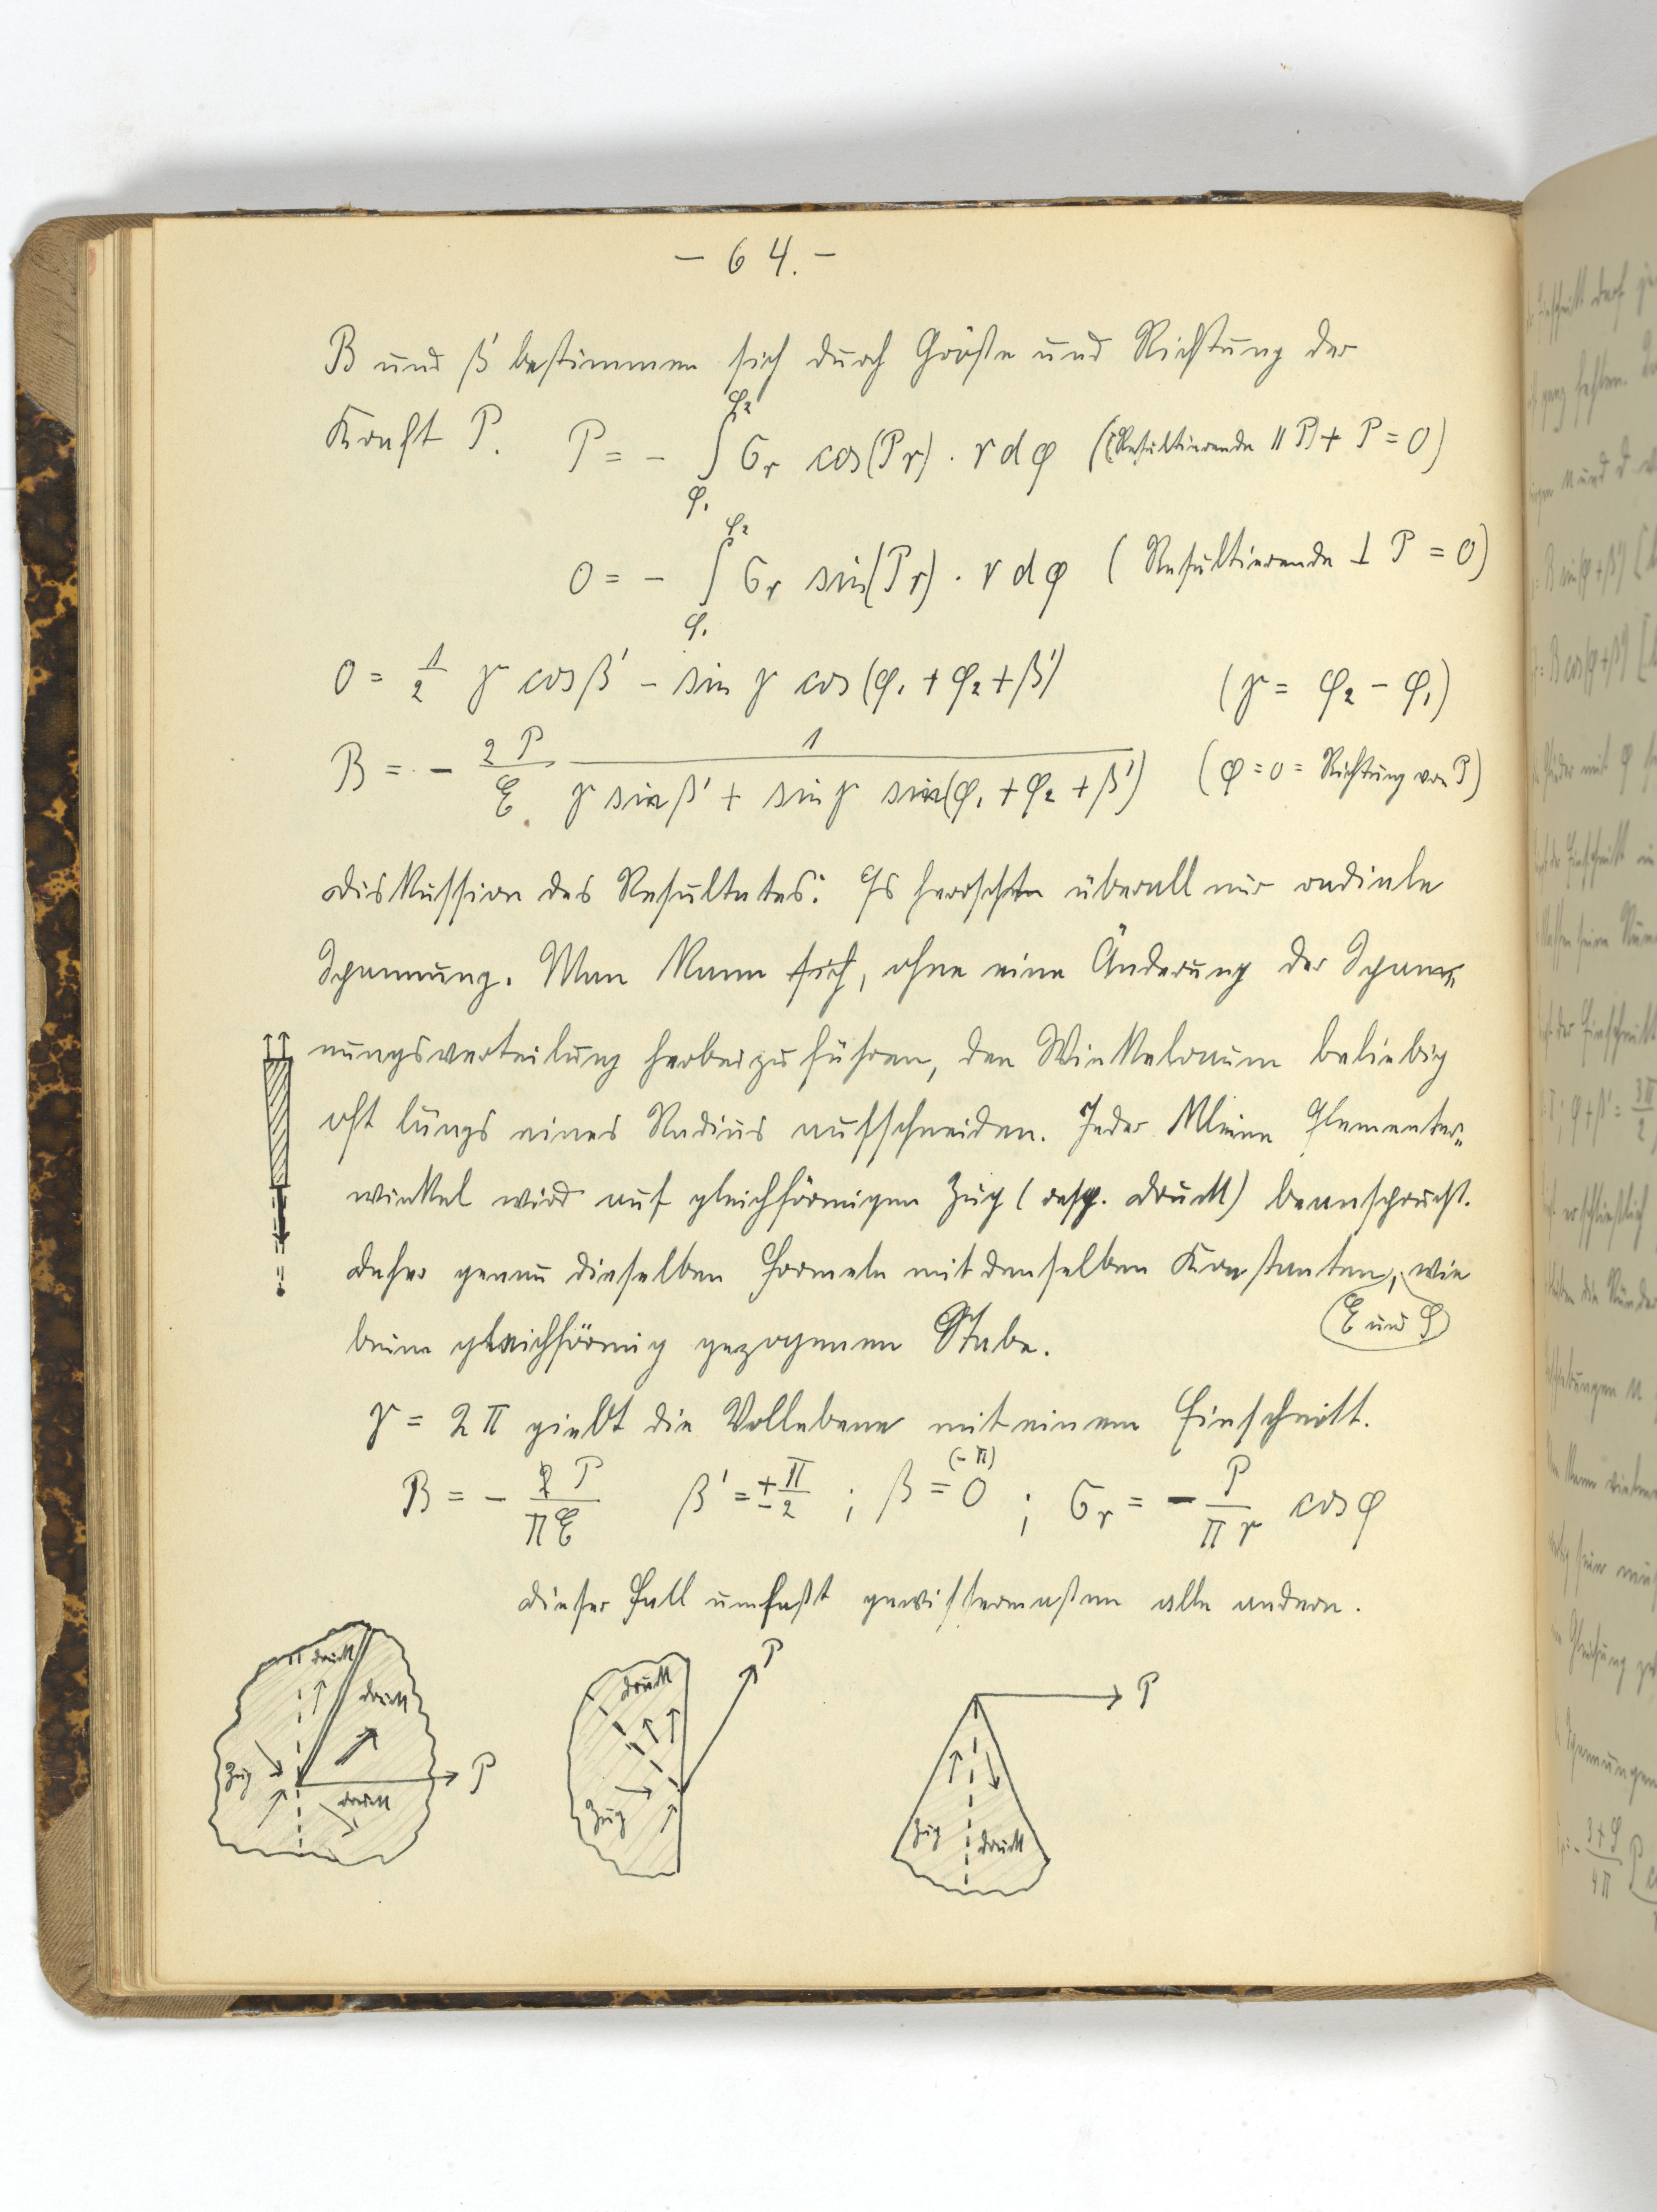 - 64. -
B und β' bestimmen sich durch Größe und Richtung der
Kraft P. P = - ∫_{φ₁}^{φ₂} σ_r cos(Pr) · r dφ (Resultierende ∥ P + P = 0)
0 = - ∫_{φ₁}^{φ₂} σ_r sin(Pr) · r dφ (Resultierende ⊥ P = 0)
0 = 1/2 γ cos β' - sin γ cos(φ₁ + φ₂ + β') (γ = φ₂ - φ₁)
B = - 2P/E 1/(γ sin β' + sin γ sin(φ₁ + φ₂ + β')) (φ = 0 = Richtung von P)
Diskussion des Resultates: Es herrscht überall nur radiale
Spannung. Man kann sich, ohne eine Änderung der Span=
nungsverteilung herbeizuführen, den Winkelraum beliebig
oft längs eines Radius aufschneiden. Jeder kleine Elementar=
winkel wird auf gleichförmigen Zug (resp. Druck) beansprucht.
Daher genau dieselben Formeln mit denselben Konstanten, wie
E und
beim gleichförmig gezogenen Stabe.
γ = 2π giebt die Vollebene mit einem Einschnitt.
B = - P/(πE) β' = ± π/2 ; β = 0 (-π) ; σ_r = - P/(πr) cos φ
Dieser Fall umfaßt gewissermaßen alle andern.
Druck
Druck
Zug
P
Druck
Druck
P
Zug
P
Zug
Druck